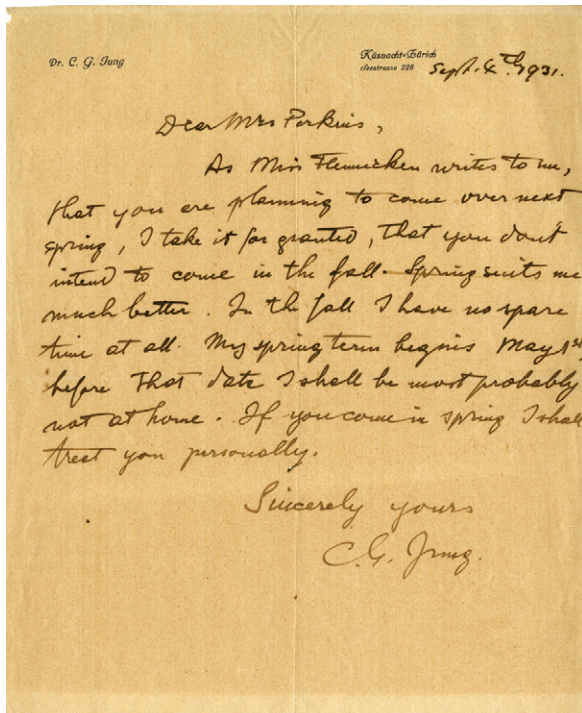 Dr. C. G. Jung
Küsnacht-Zürich
Seestrasse 228
Sept. 4th 1931.
Dear Mrs Perkins,
As Miss Flennicken writes to me,
that you are planning to come over next
spring, I take it for granted, that you don't
intend to come in the fall. Spring suits me
much better. In the fall I have no spare
time at all. My spring term begins May 1st
before that date I shall be most probably
not at home. If you come in spring I shall
treat you personally.
Sincerely yours
C. G. Jung.